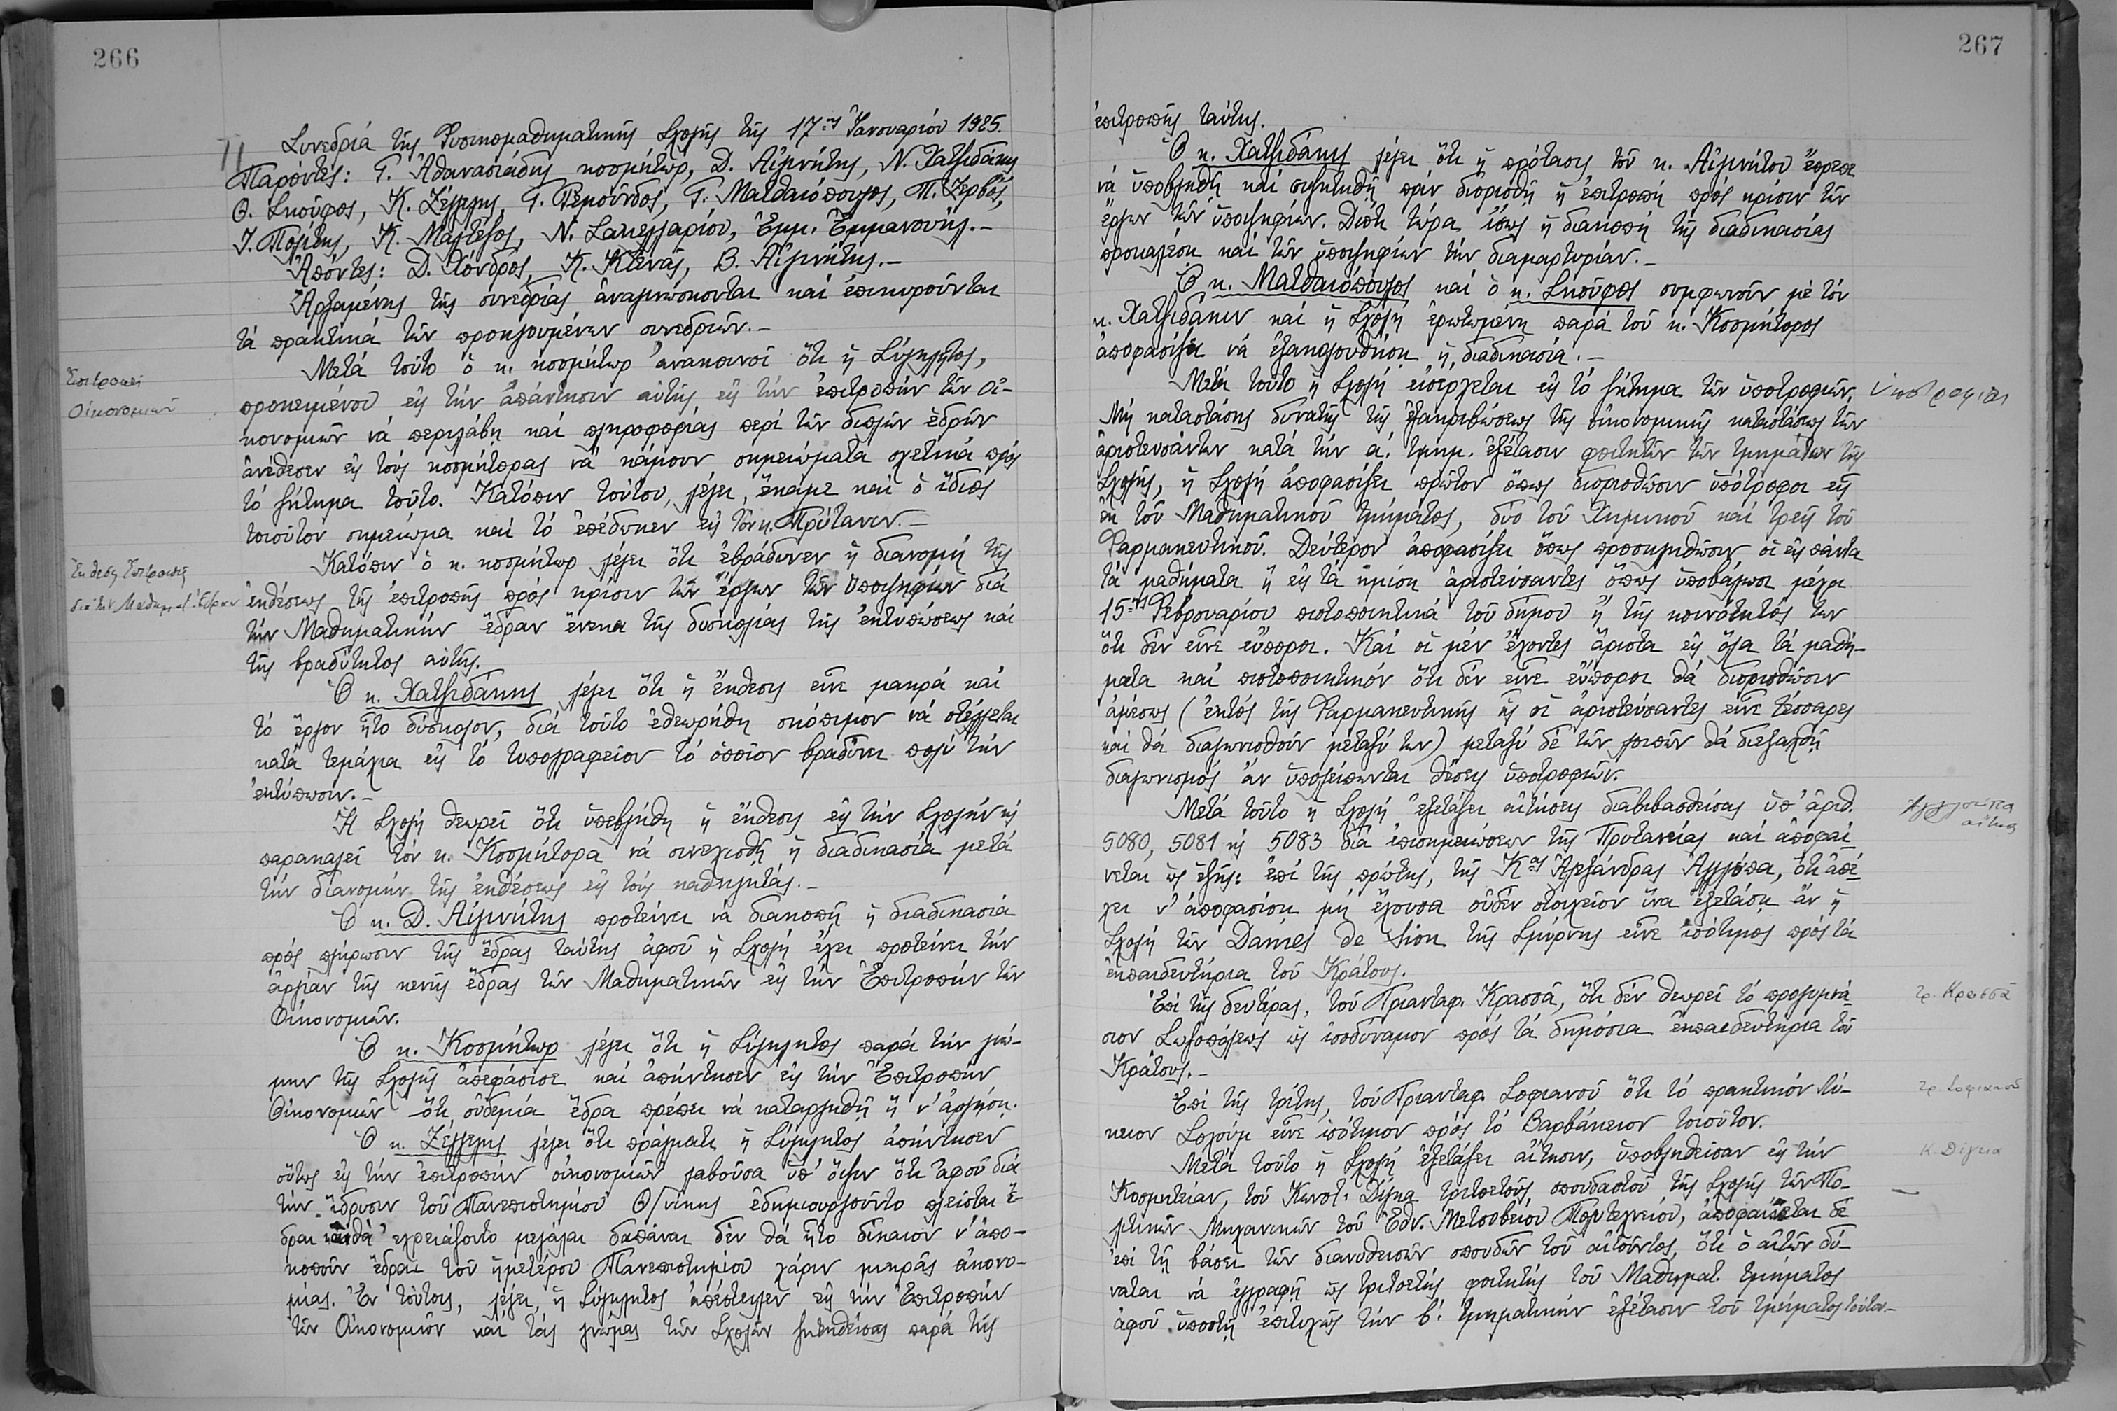 266
Συνεδρία τῆς Φυσικομαθηματικῆς Σχολῆς τῆς 17ης Ἰανουαρίου 1925.
Παρόντες: Γ. Ἀθανασιάδης κοσμήτωρ, Δ. Αἰγινήτης, Ν. Χατζιδάκης
Θ. Σκοῦφος, Κ. Ζέγγελης, Γ. Ρεμοῦνδος, Γ. Ματθαιόπουλος, Π. Ζερβός,
Ι. Πολίτης, Κ. Μαλτέζος, Ν. Σακελλαρίου, Ἐμμ. Ἐμμανουήλ.-
Ἀπόντες: Δ. Χόνδρος, Κ. Κτενᾶς, Β. Αἰγινήτης.-
Ἀρξαμένης τῆς συνεδρίας ἀναγινώσκονται καί ἐπικυροῦνται
τά πρακτικά τῶν προηγουμένων συνεδριῶν.-
Μετά τοῦτο ὁ κ. κοσμήτωρ ἀνακοινοῖ ὅτι ἡ Σύγκλητος,
Ἐπιτροπή
Οἰκονομιῶν
προκειμένου εἰς τήν ἀπάντησιν αὐτῆς εἰς τήν ἐπιτροπήν τῶν οἰ-
κονομιῶν νά περιλάβῃ καί πληροφορίας περί τῶν διπλῶν ἑδρῶν
ἀνέθεσεν εἰς τούς κοσμήτορας νά κάμουν σημειώματα σχετικά πρός
τό ζήτημα τοῦτο. Κατόπιν τούτου, λέγει, ἔκαμε καί ὁ ἴδιος
τοιοῦτον σημείωμα καί τό ἐπέδωκεν εἰς τόν κ. Πρύτανιν.-
Κατόπιν ὁ κ. κοσμήτωρ λέγει ὅτι ἐβράδυνεν ἡ διανομή τῆς
Ἔκθεσις Ἐπιτροπῆς
διά τήν Μαθηματ. ἕδραν
ἐκθέσεως τῆς ἐπιτροπῆς πρός κρίσιν τῶν ἔργων τῶν ὑποψηφίων διά
τήν Μαθηματικήν ἕδραν ἕνεκα τῆς δυσκολίας τῆς ἐκτυπώσεως καί
τῆς βραδύτητος αὐτῆς.
Ὁ κ. Χατζιδάκης λέγει ὅτι ἡ ἔκθεσις εἶνε μακρά καί
τό ἔργον ἦτο δύσκολον, διά τοῦτο ἐθεωρήθη σκόπιμον νά στέλλεται
κατά τεμάχια εἰς τό τυπογραφεῖον τό ὁποῖον βραδύνει πολύ τήν
ἐκτύπωσιν.-
Ἡ Σχολή θεωρεῖ ὅτι ὑπεβλήθη ἡ ἔκθεσις εἰς τήν Σχολήν κ
παρακαλεῖ τόν κ. Κοσμήτορα νά συνεχισθῇ ἡ διαδικασία μετά
τήν διανομήν τῆς ἐκθέσεως εἰς τούς καθηγητάς.-
Ὁ κ. Δ. Αἰγινήτης προτείνει νά διακοπῇ ἡ διαδικασία
πρός πλήρωσιν τῆς ἕδρας ταύτης ἀφοῦ ἡ Σχολή ἔχει προτείνει τήν
ἀργίαν τῆς κενῆς ἕδρας τῶν Μαθηματικῶν εἰς τήν Ἐπιτροπήν τῶν
Οἰκονομιῶν.
Ὁ κ. Κοσμήτωρ λέγει ὅτι ἡ Σύγκλητος παρά τήν γνώ-
μην τῆς Σχολῆς ἀπεφάσισε καί ἀπήντησεν εἰς τήν Ἐπιτροπήν
Οἰκονομιῶν ὅτι οὐδεμία ἕδρα πρέπει νά καταργηθῇ ἤ ν' ἀργήσῃ.
Ὁ κ. Ζέγγελης λέγει ὅτι πράγματι ἡ Σύγκλητος ἀπήντησεν
οὕτως εἰς τήν ἐπιτροπήν οἰκονομιῶν λαβοῦσα ὑπ' ὄψιν ὅτι ἀφοῦ διά
τήν ἵδρυσιν τοῦ Πανεπιστημίου Θ/νίκης ἐδημιουργοῦντο πλεῖσται ἕ-
δραι καί θά ἐχρειάζοντο μεγάλαι δαπάναι δέν θά ἦτο δίκαιον ν' ἀπο-
κοποῦν ἕδραι τοῦ ἡμετέρου Πανεπιστημίου χάριν μικρᾶς οἰκονο-
μίας. Ἐν τούτοις, λέγει, ἡ Σύγκλητος ἀπέστειλεν εἰς τήν Ἐπιτροπήν
τῶν Οἰκονομιῶν καί τάς γνώμας τῶν Σχολῶν ζητηθείσας παρά τῆς
267
ἐπιτροπῆς ταύτης.
Ὁ κ. Χατζιδάκης λέγει ὅτι ἡ πρότασις τοῦ κ. Αἰγινήτου ἔπρεπε
νά ὑποβληθῇ καί συζητηθῇ πρίν διορισθῇ ἡ ἐπιτροπή πρός κρίσιν τῶν
ἔργων τῶν ὑποψηφίων. Διότι τώρα ἴσως ἡ διακοπή τῆς διαδικασίας
προκαλέσῃ καί τῶν ὑποψηφίων τήν διαμαρτυρίαν.-
Ὁ κ. Ματθαιόπουλος καί ὁ κ. Σκοῦφος συμφωνοῦν μέ τόν
κ. Χατζιδάκιν καί ἡ Σχολή ἐρωτωμένη παρά τοῦ κ. Κοσμήτορος
ἀποφασίζει νά ἐξακολουθήσῃ ἡ διαδικασία.-
Μετά τοῦτο ἡ Σχολή εἰσέρχεται εἰς τό ζήτημα τῶν ὑποτροφιῶν.
Ὑποτροφίαι
Μή καταστάσης δυνατῆς τῆς ἐξακριβώσεως τῆς οἰκονομικῆς καταστάσεως τῶν
ἀριστευσάντων κατά τήν α΄. τμημ. ἐξέτασιν φοιτητῶν τῶν τμημάτων τῆς
Σχολῆς, ἡ Σχολή ἀποφασίζει πρῶτον ὅπως διορισθῶσιν ὑπότροφοι εἷς
ἐκ τοῦ Μαθηματικοῦ τμήματος, δύο τοῦ Χημικοῦ καί τρεῖς τοῦ
Φαρμακευτικοῦ. Δεύτερον ἀποφασίζει ὅπως προσκληθῶσιν οἱ εἰς πάντα
τά μαθήματα ἤ εἰς τά ἡμίση ἀριστεύσαντες ὅπως ὑποβάλωσι μέχρι
15ης Φεβρουαρίου πιστοποιητικά τοῦ δήμου ἤ τῆς κοινότητός των
ὅτι δέν εἶνε εὔποροι. Καί οἱ μέν ἔχοντες ἄριστα εἰς ὅλα τά μαθή-
ματα καί πιστοποιητικόν ὅτι δέν εἶνε εὔποροι θά διορισθῶσιν
ἀμέσως (ἐκτός τῆς Φαρμακευτικῆς ἧς οἱ ἀριστεύσαντες εἶνε τέσσαρες
καί θά διαγωνισθοῦν μεταξύ των) μεταξύ δέ τῶν λοιπῶν θά διεξαχθῇ
διαγωνισμός ἄν ὑπολείπωνται θέσεις ὑποτροφιῶν.
Μετά τοῦτο ἡ Σχολή ἐξετάζει αἰτήσεις διαβιβασθείσας ὑπ' ἀριθ.
5080, 5081 κ 5083 διά ἐπισημειώσεων τῆς Πρυτανείας καί ἀποφαί
νεται ὡς ἑξῆς: ἐπί τῆς πρώτης, τῆς Κας Ἀλεξάνδρας Ἀγγλούπα, ὅτι ἀπέ-
χει ν' ἀποφασίσῃ μή ἔχουσα οὐδέν στοιχεῖον ἵνα ἐξετάσῃ ἄν ἡ
Σχολή τῶν Dames de Sion τῆς Σμύρνης εἶνε ἰσότιμος πρός τά
ἐκπαιδευτήρια τοῦ Κράτους.
Ἐπί τῆς δευτέρας, τοῦ Τριανταφ. Κρασσᾶ, ὅτι δέν θεωρεῖ τό προγυμνά-
Τρ. Κρασσᾶ
σιον Σωζοπόλεως ὡς ἰσοδύναμον πρός τά δημόσια ἐκπαιδευτήρια τοῦ
Κράτους.-
Ἐπί τῆς τρίτης, τοῦ Τριανταφ. Σοφιανοῦ ὅτι τό πρακτικόν Λύ-
Τρ. Σοφιανοῦ
κειον Σχολούμ εἶνε ἰσότιμον πρός τό Βαρβάκειον τοιοῦτον.
Μετά τοῦτο ἡ Σχολή ἐξετάζει αἴτησιν, ὑποβληθεῖσαν εἰς τήν
Κοσμητείαν, τοῦ Κωνστ. Δίγκα τριτοετοῦς σπουδαστοῦ τῆς Σχολῆς τῶν Πο-
λιτικῶν Μηχανικῶν τοῦ Ἐθν. Μετσοβείου Πολυτεχνείου, ἀποφαίνεται δέ
ἐπί τῇ βάσει τῶν διανυθεισῶν σπουδῶν τοῦ αἰτοῦντος, ὅτι ὁ αἰτῶν δύ-
ναται νά ἐγγραφῇ ὡς τριτοετής φοιτητής τοῦ Μαθηματ. τμήματος
ἀφοῦ ὑποστῇ ἐπιτυχῶς τήν β΄. τμηματικήν ἐξέτασιν τοῦ τμήματος τούτου-